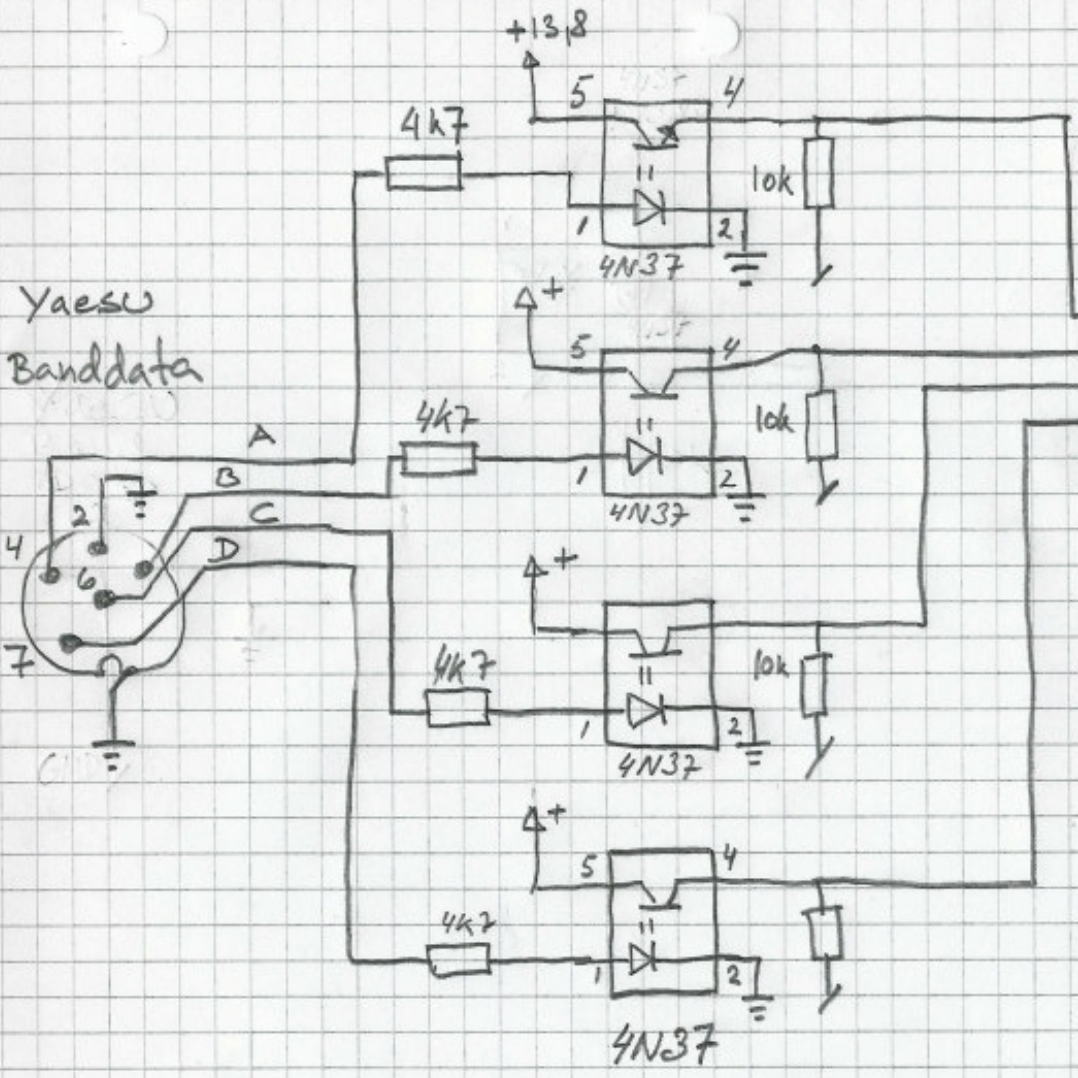 +13,8
5
4
4k7
10k
1
2
4N37
Yaesu
Banddata
+
5
4
4k7
10k
A
1
2
B
4N37
C
2
D
4
6
+
7
4k7
10k
1
2
4N37
+
5
4
4k7
1
2
4N37